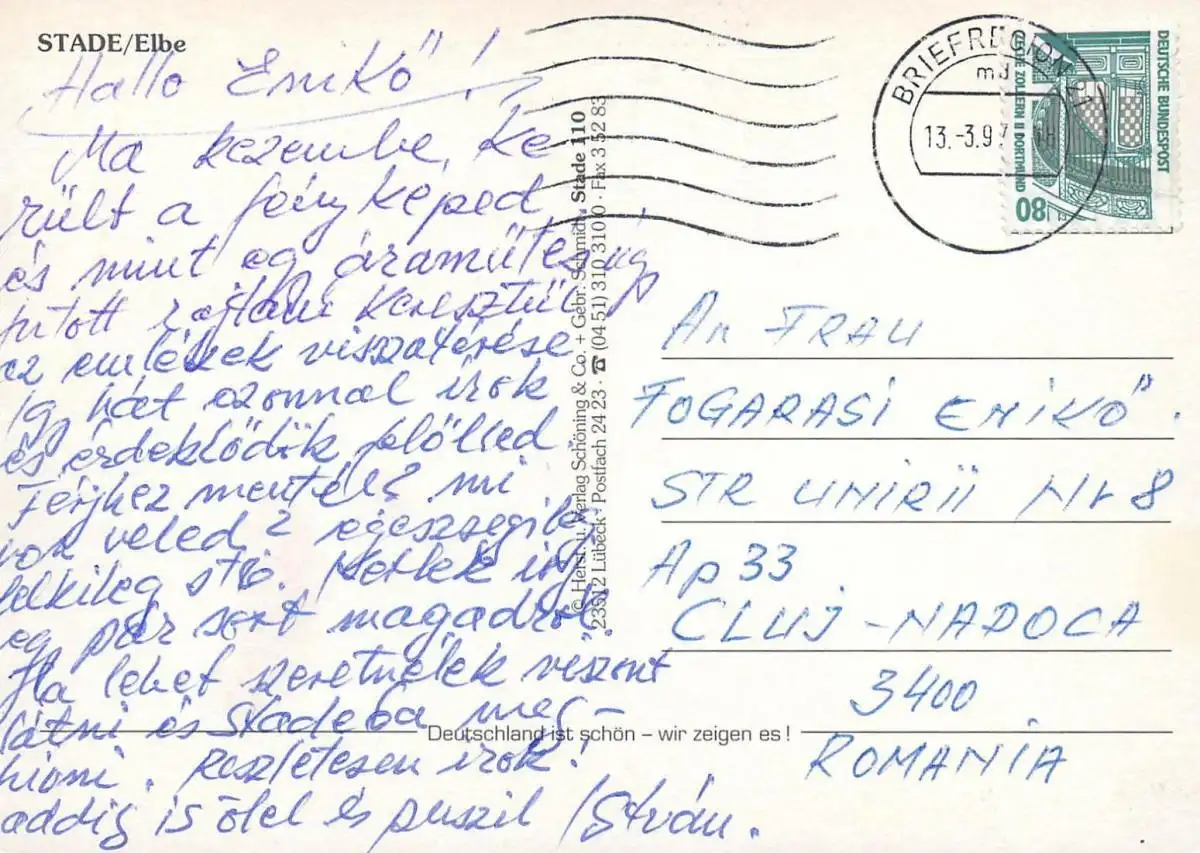 STADE/Elbe
Hallo Enikö!
Ma kezembe, ke
rült a fényképed,
és mint eg áramütés úg
futott rajtam keresztül
az emlékek visszatérése
Ig hát azonnal irok
és érdeklödik felölled
Férjhez mentél? mi
van veled? egészségileg
lelkileg stb. Kerlek irj
eg pár sort magadrol.
Ha lehet szeretnélek viszont
látni és Stadeba meg-
hivni. Reszletesen irok!
addig is ölel és puszil István.
© Herst. u. Verlag Schöning & Co. + Gebr. Schmidt, Stade 110
23512 Lübeck · Postfach 24 23 · ☎ (04 51) 310 310 · Fax 3 52 83
Deutschland ist schön – wir zeigen es!
BRIEFREGION 21
md
13.-3.97
DEUTSCHE BUNDESPOST
ZECHE ZOLLERN II DORTMUND
80
An FRAU
FOGARASI ENIKÖ.
STR UNIRII Nr 8
Ap 33
CLUJ-NAPOCA
3400
ROMANIA